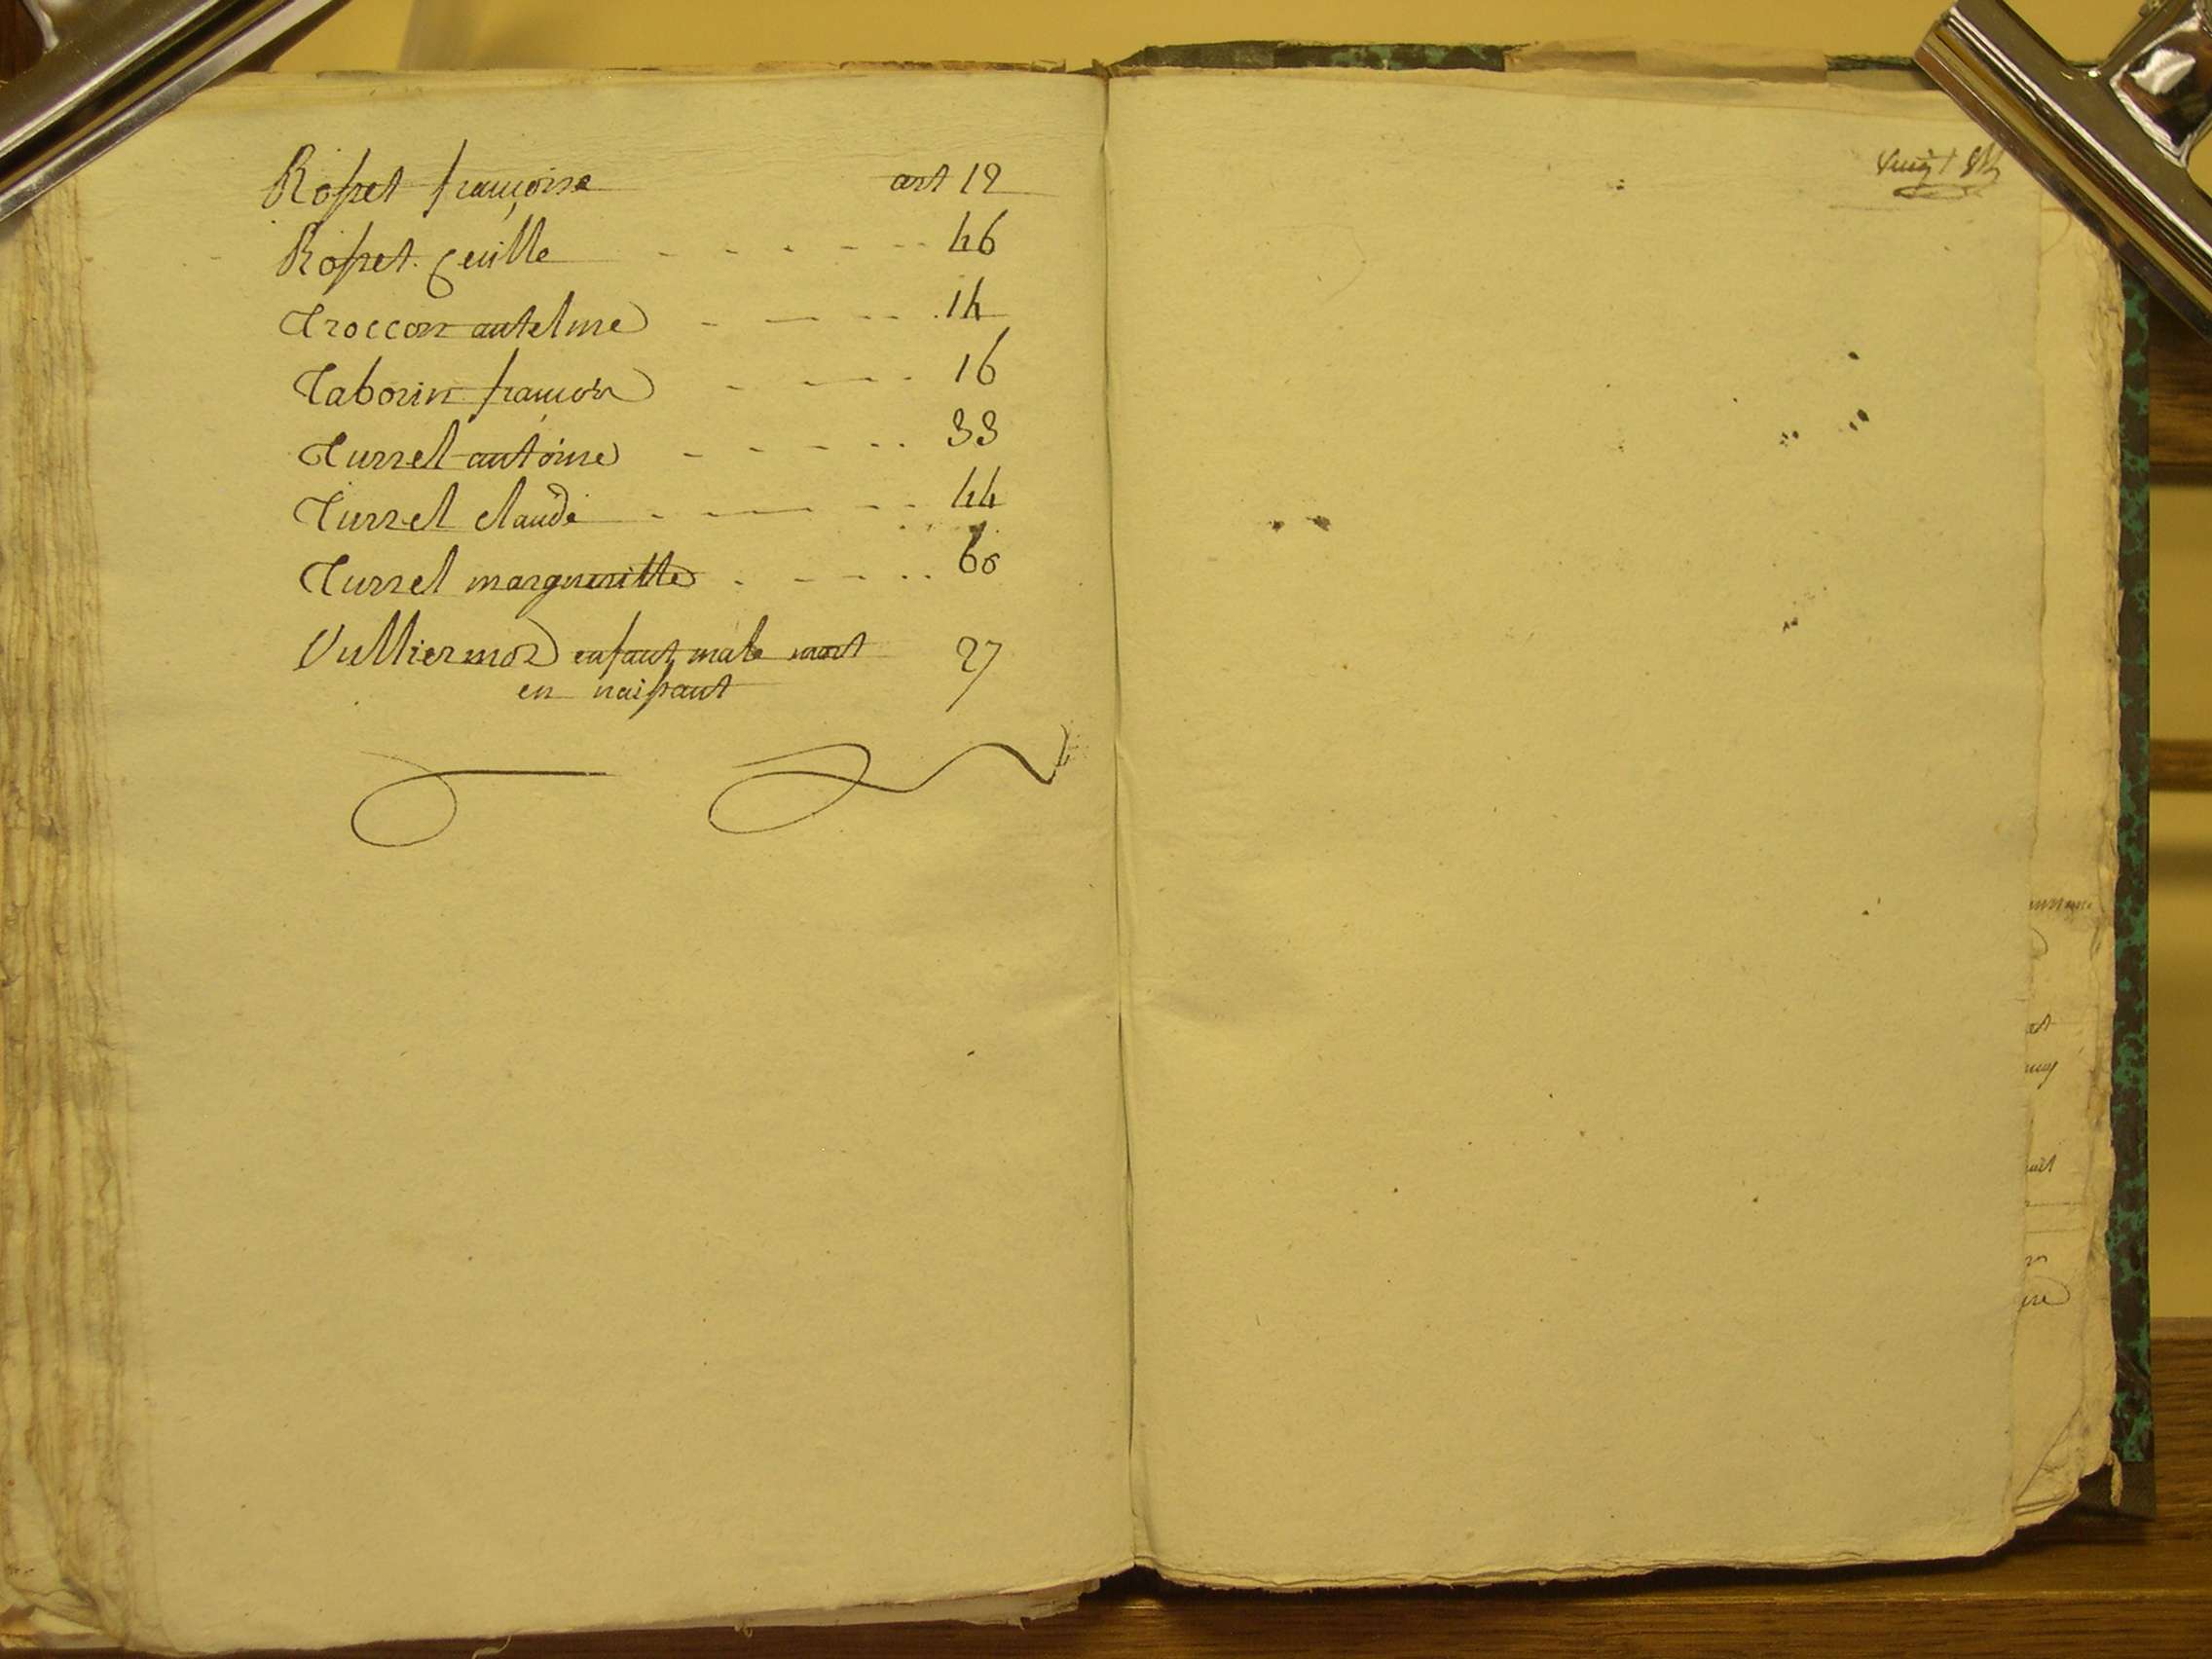 Rosset françoise art 12
Rosset - - - - - - 46
Troccon antelme - - - - - 14
Taborin françois - - - - - 16
Turrel antoine - - - - - - 33
Turrel claude - - - - - 44
Turrel margueritte - - - - - 60
Vulliermoz enfant male mort 27
en naissant